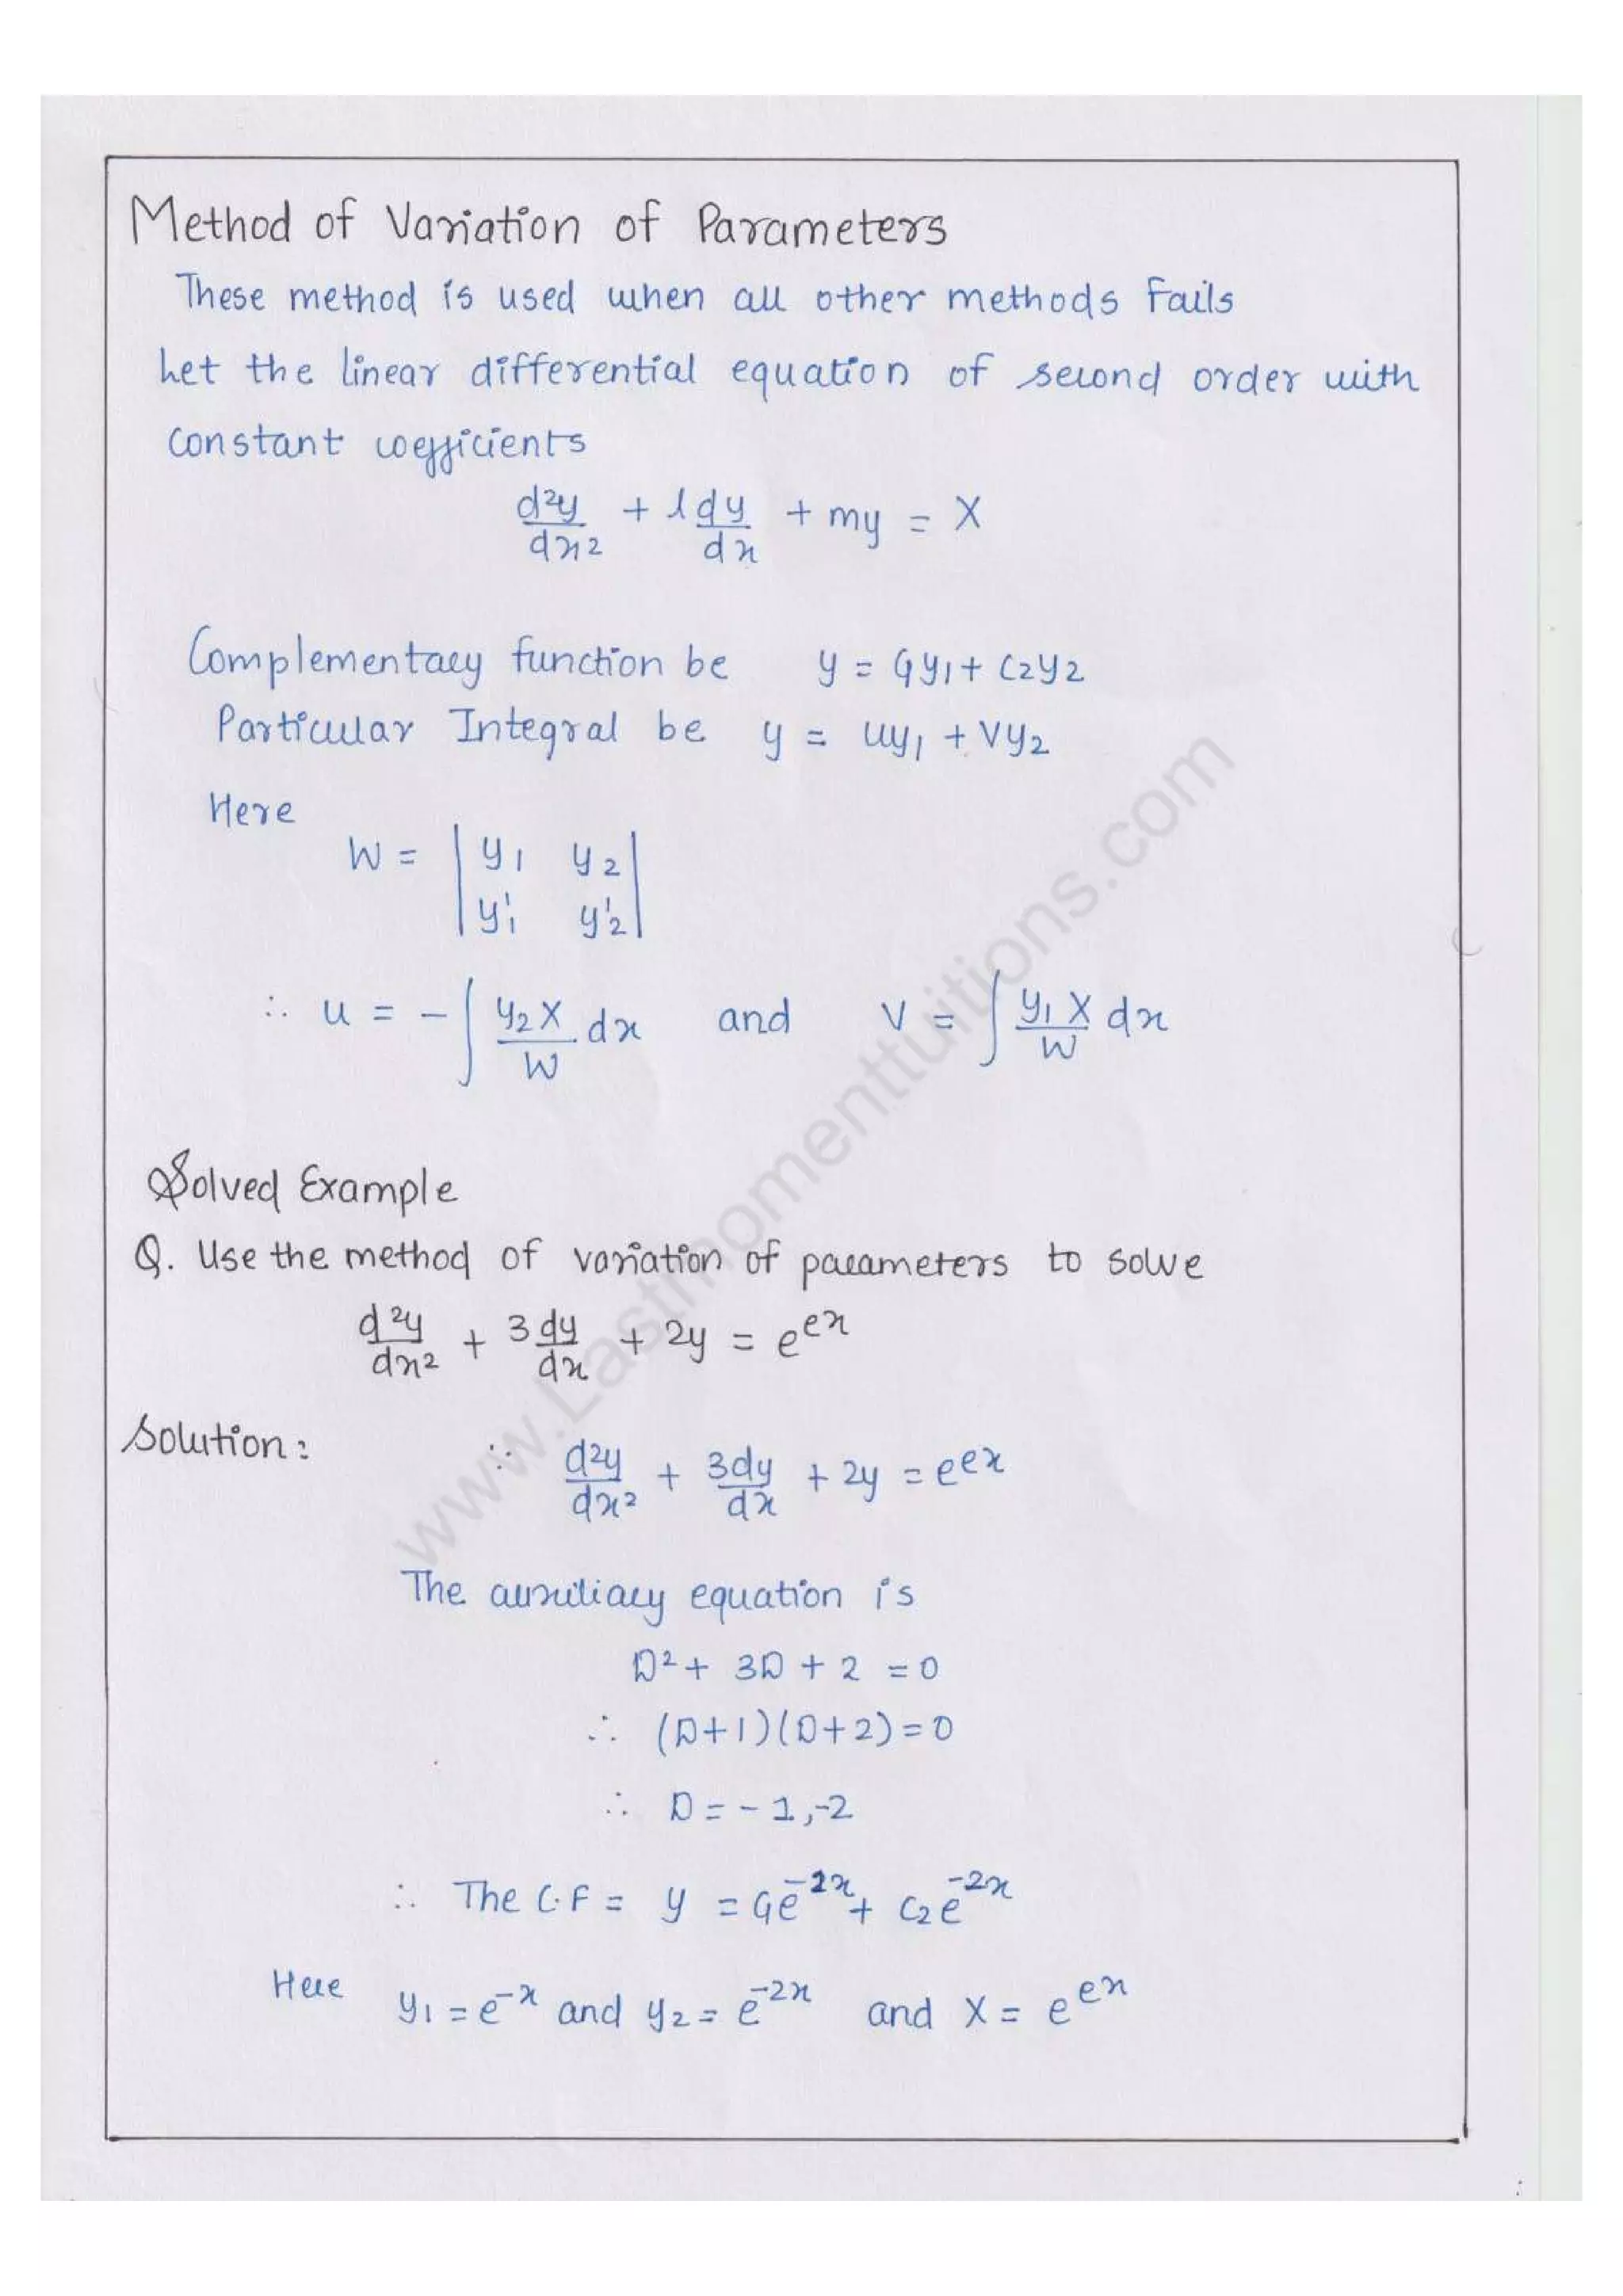 Method of Variation of Parameters
These method is used when all other methods fails
Let the linear differential equation of second order with
constant coefficients
d²y/dx² + l dy/dx + my = X
Complementary function be y = C1y1 + C2y2
Particular Integral be y = uy1 + vy2
Here
W = | y1 y2 |
| y1' y2' |
∴ u = - ∫ y2X/W dx and v = ∫ y1X/W dx
Solved Example
Q. Use the method of variation of parameters to solve
d²y/dx² + 3dy/dx + 2y = e^e^x
Solution: ∵ d²y/dx² + 3dy/dx + 2y = e^e^x
The auxiliary equation is
D² + 3D + 2 = 0
∴ (D+1)(D+2) = 0
∴ D = -1,-2
∴ The C.F = y = C1e^-1x + C2e^-2x
Here y1 = e^-x and y2 = e^-2x and X = e^e^x
www.Lastmomenttuitions.com